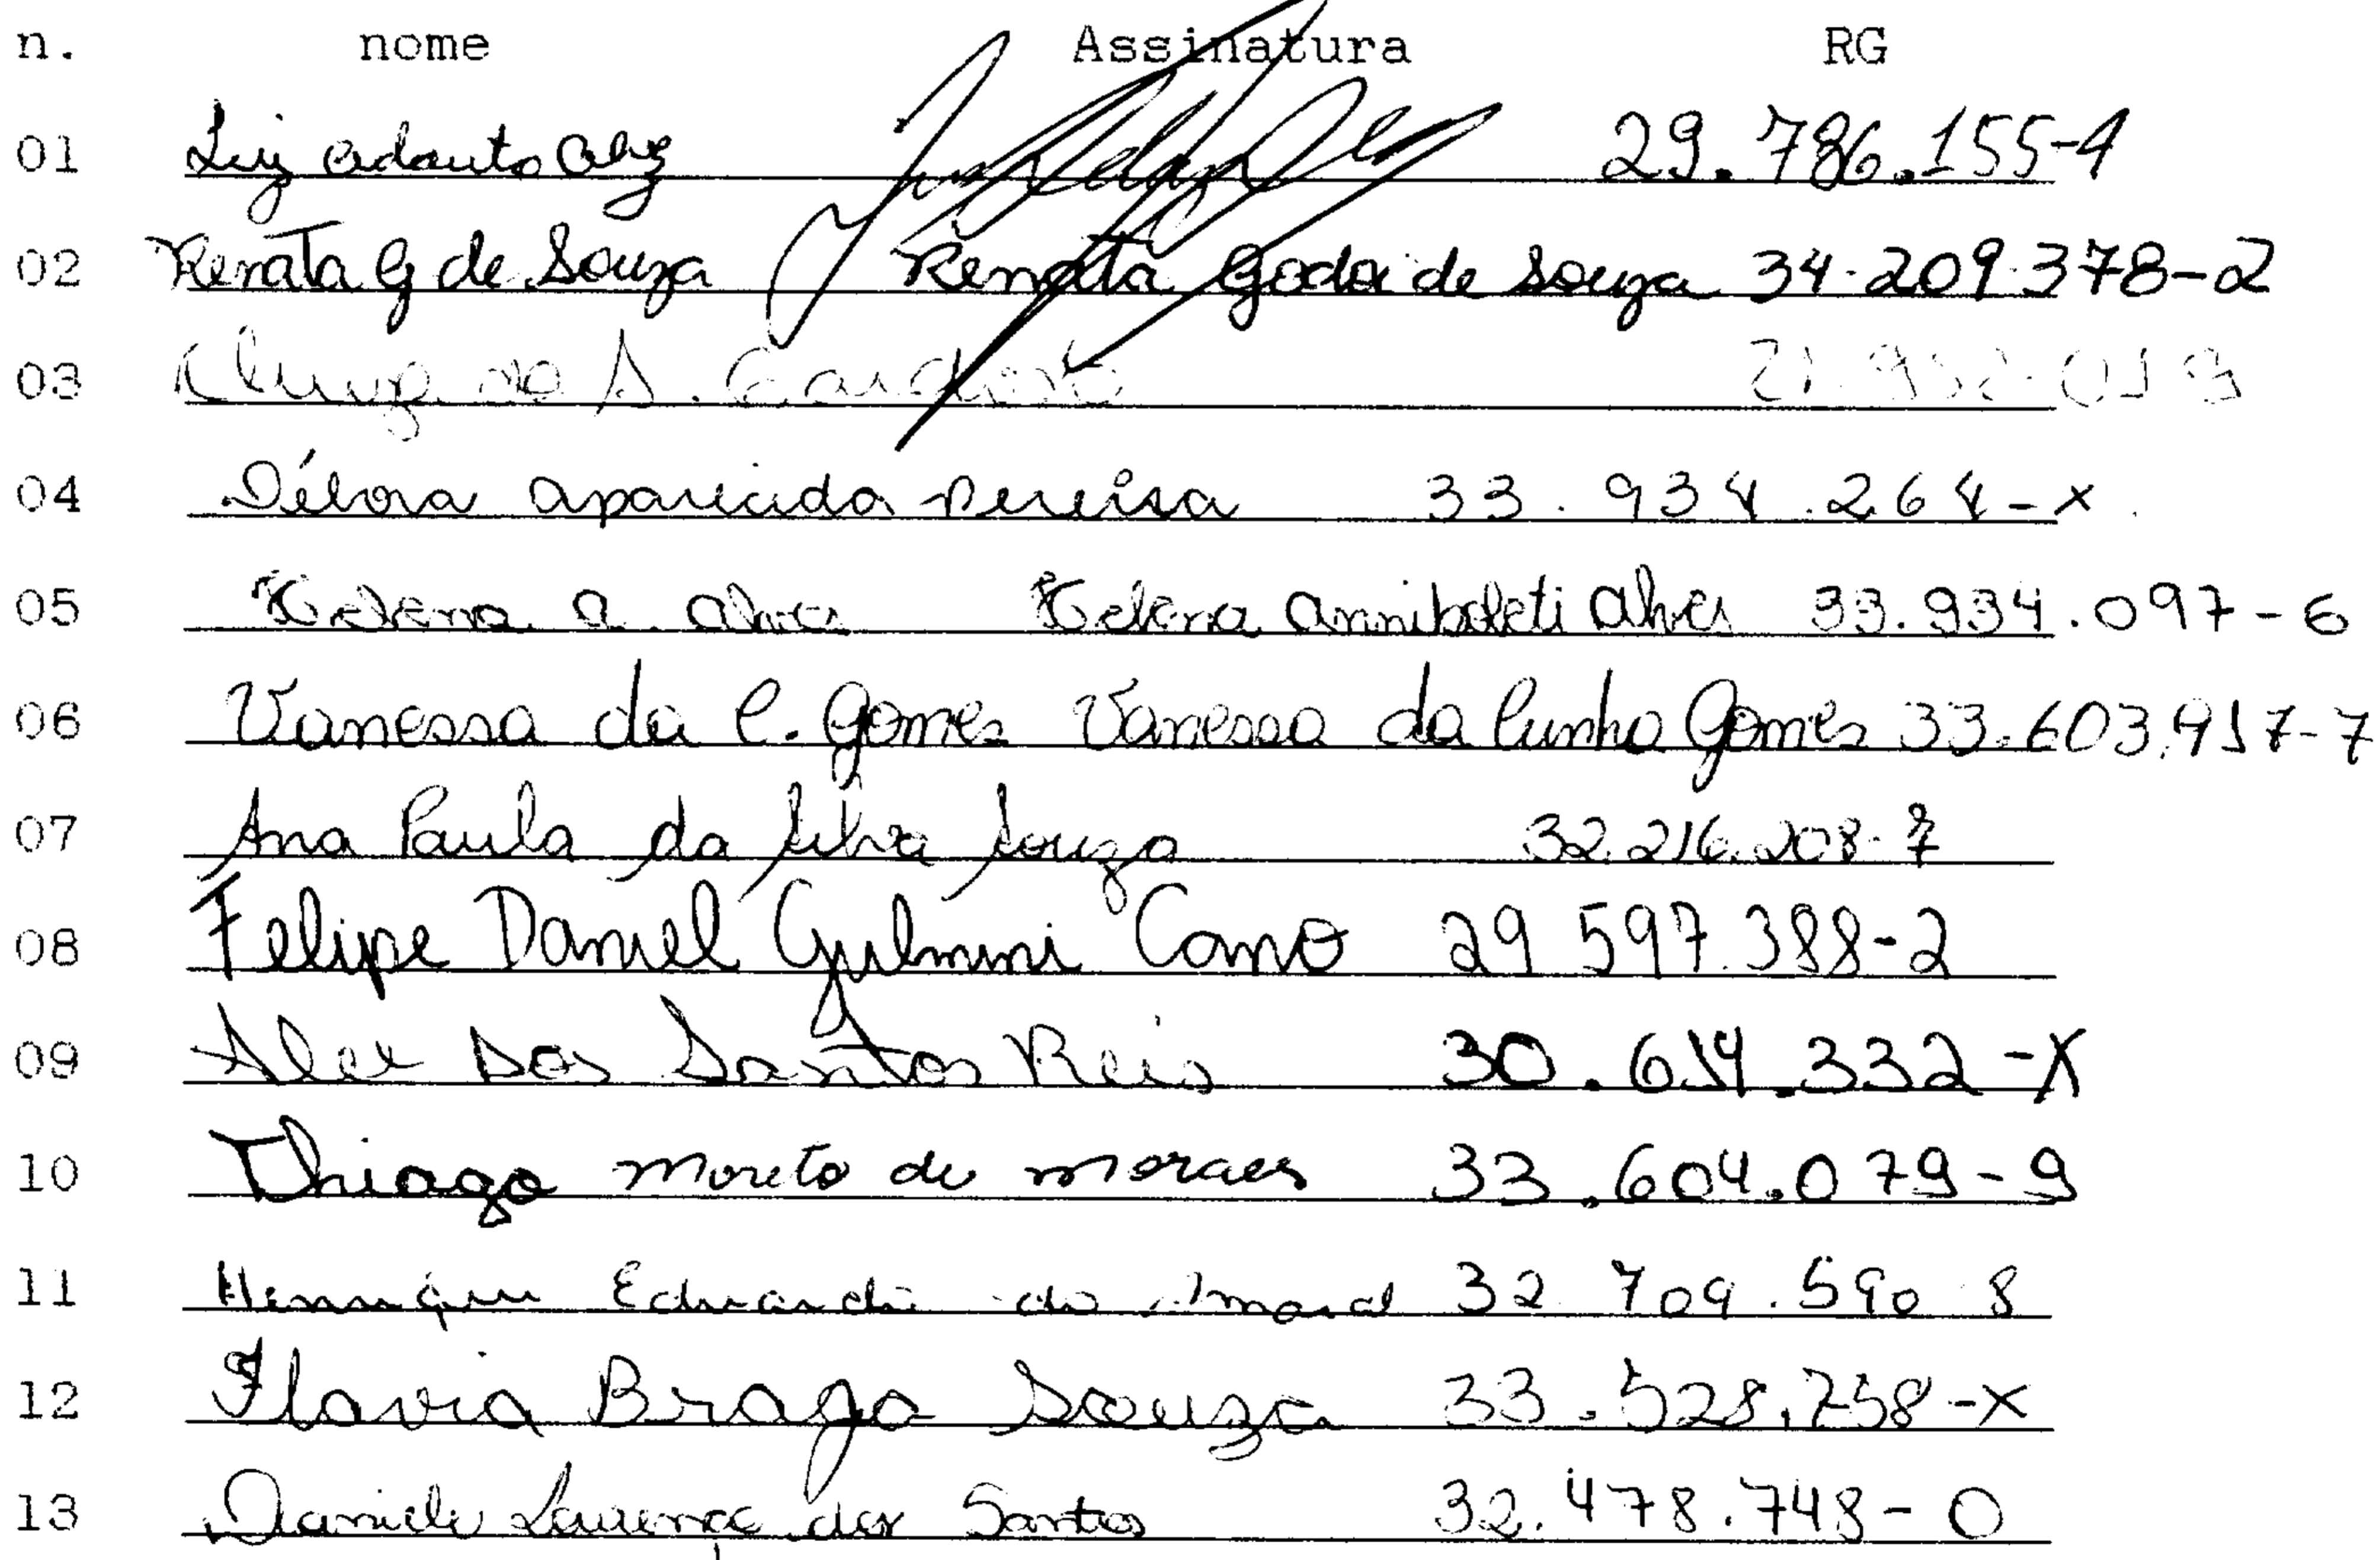 n. nome Assinatura RG
01 Luiz Adauto 29.786.155-4
02 Renata G de Souza Renata Godoi de Souza 34.209.378-2
03 de S. Cardoso
04 Débora aparecida Pereira 33.934.264-x
05 Helena A. Alves Helena Anniboleti Alves 33.934.097-6
06 Vanessa da C. Gomes Vanessa da Cunha Gomes 33.603.917-7
07 Ana Paula da Silva Souza 32.216.208-7
08 Felipe Daniel Cano 29 597.388-2
09 Alex Dos Santos Reis 30.614.332-X
10 Thiago Moreto de Moraes 33.604.079-9
11 Henrique Eduardo do Amaral 32 709.590 8
12 Flavia Braga Souza 33.528.758-X
13 Daniele Lourenço dos Santos 32.478.748-0